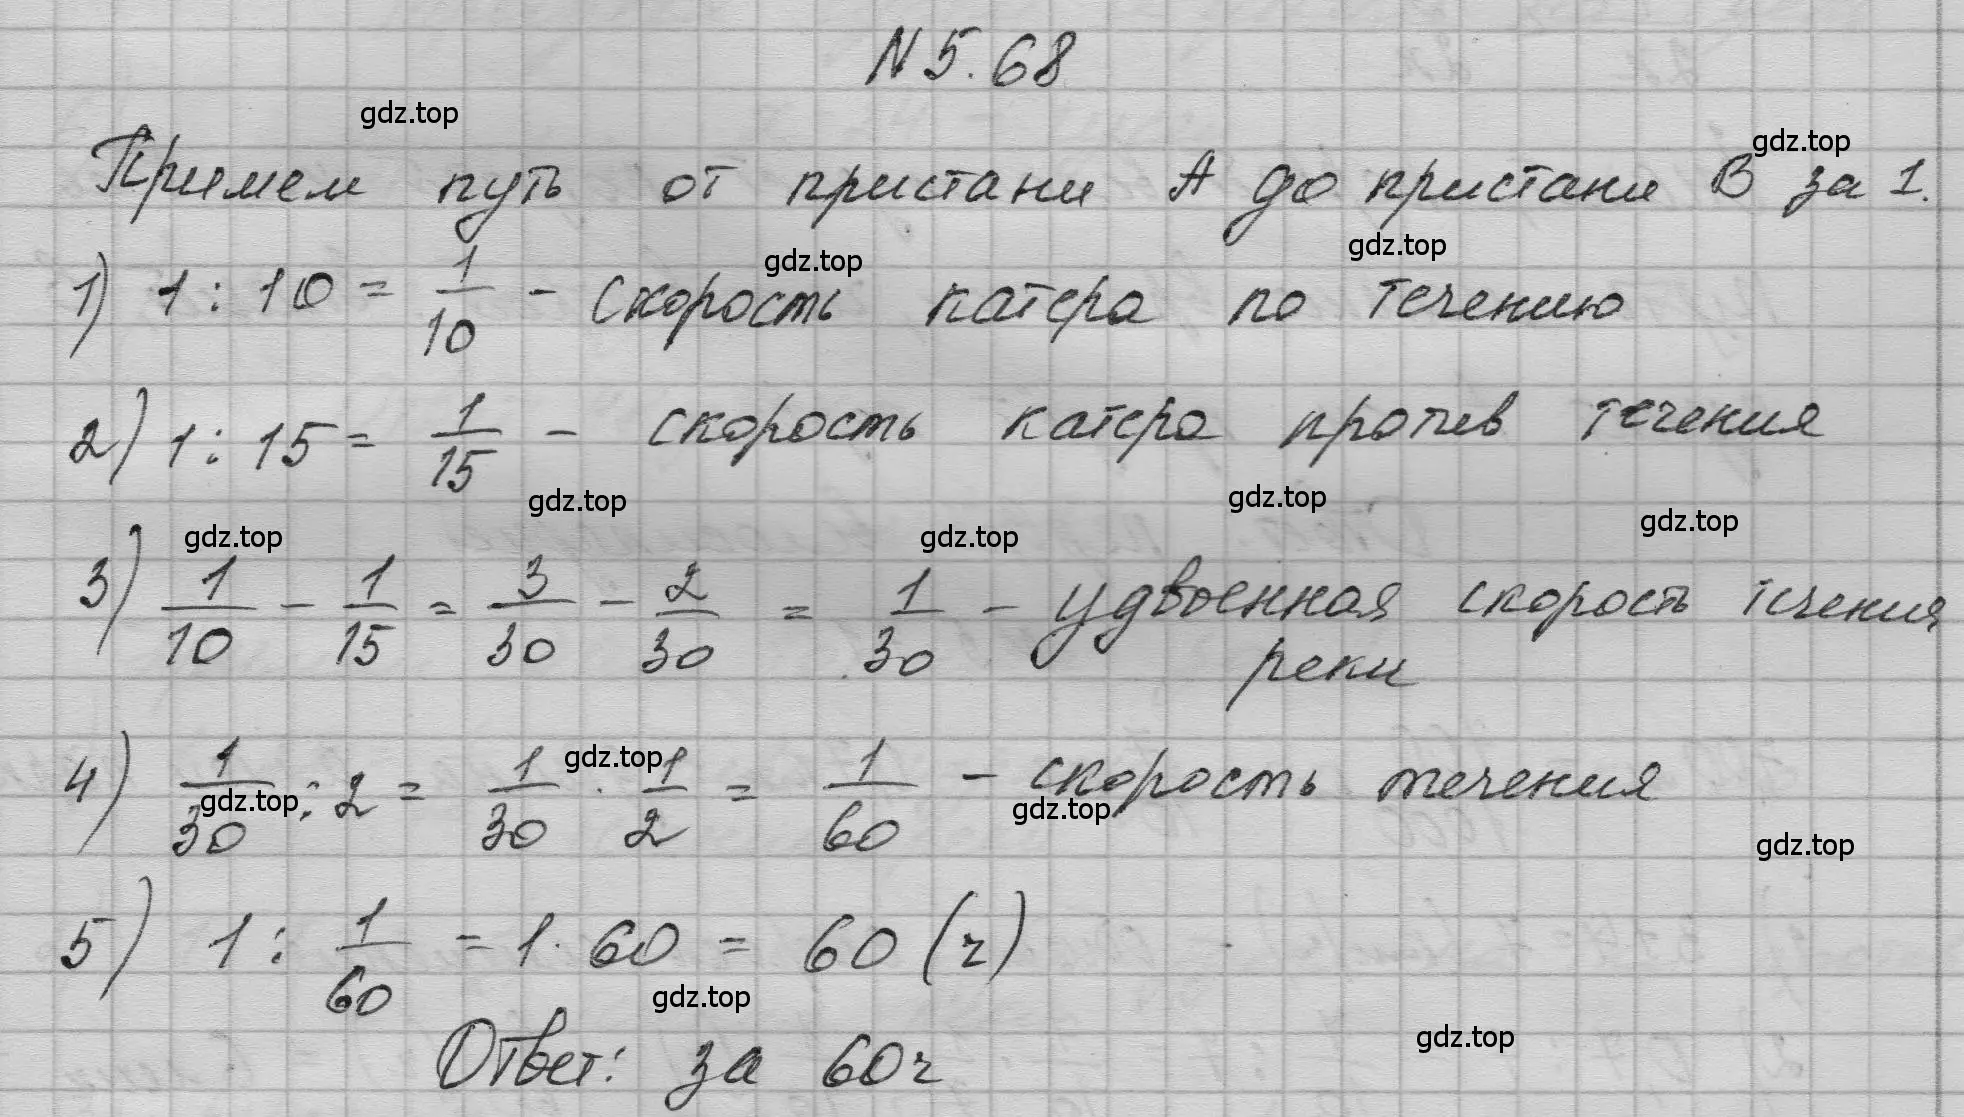 N 5.68
gdz.top
Примем путь от пристани A до пристани B за 1.
gdz.top
1) 1 : 10 = 1/10 - скорость катера по течению
gdz.top
gdz.top
2) 1 : 15 = 1/15 - скорость катера против течения
gdz.top
gdz.top
gdz.top
gdz.top
gdz.top
3) 1/10 - 1/15 = 3/30 - 2/30 = 1/30 - удвоенная скорость течения
реки
4) 1/30 : 2 = 1/30 · 1/2 = 1/60 - скорость течения
gdz.top
gdz.top
gdz.top
gdz.top
5) 1 : 1/60 = 1 · 60 = 60 (ч)
gdz.top
gdz.top
Ответ: за 60ч